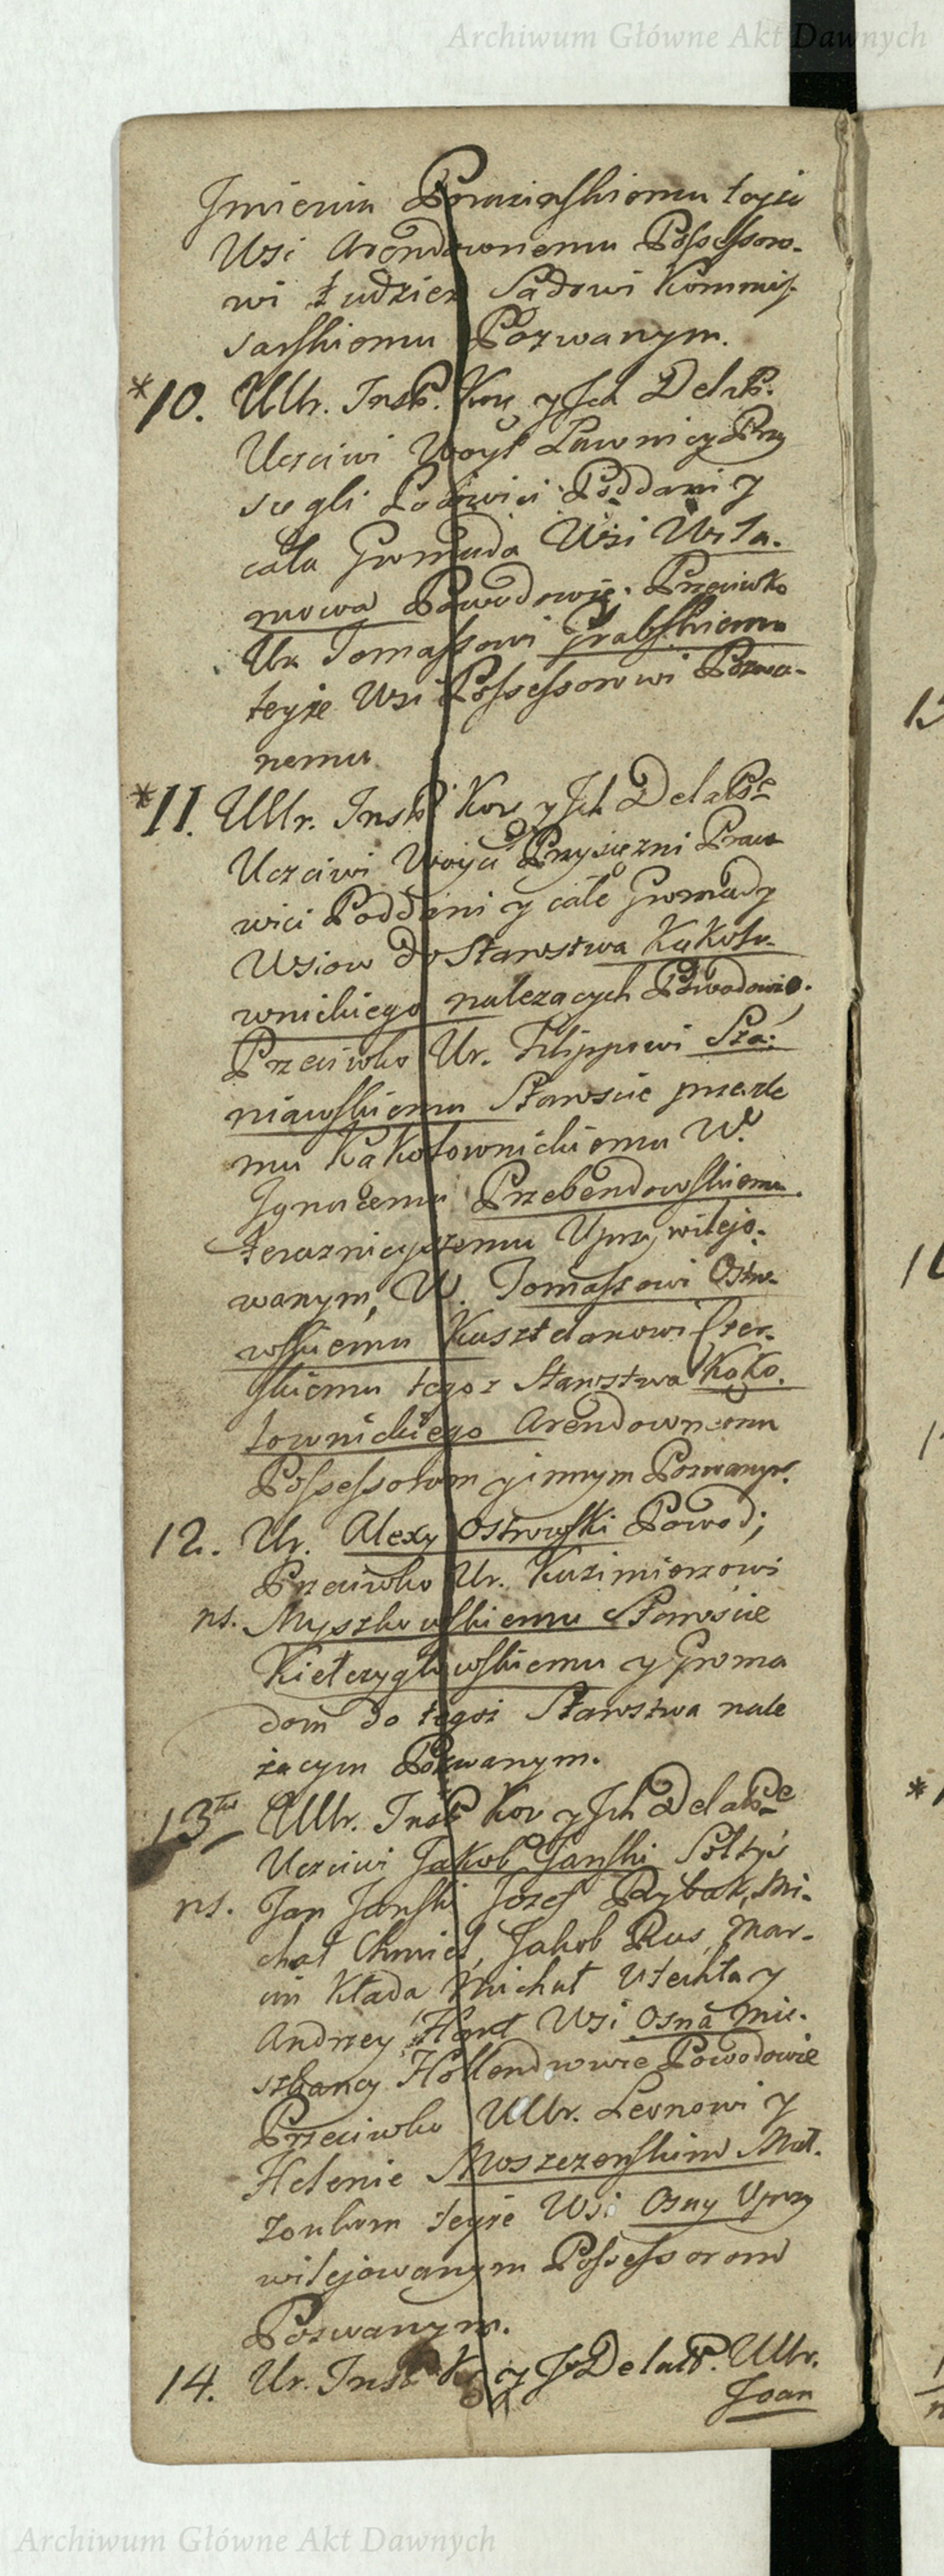 Archiwum Główne Akt Dawnych
Imieniu teyże
Wsi Arendownemu Possesoro-
wi Sądowi Kommis-
sarskiemu Pozwanym.
*10. UUr. Inst. Kor. y Ich Delat.
Uczciwi Woyt Ławnicy Przy
sięgli Poddani y
cała Gromada Wsi Wrza-
mowa Powodowie. Przeciwko
Ur. Tomaszowi Grabskiemu
teyże Wsi Possessorowi Pozwa-
nemu
*11. UUr. Inst. Kor. y Ich Delatse
Uczciwi Woyci Przysiężni Praco
wici Poddani y całe Gromady
Wsiow do Starostwa Kąkolo-
wnickiego należących Powodowie.
Przeciwko Ur. Filippowi Sza:
niawskiemu Staroscie przesz
mu Kąkolownickiemu W.
Ignacemu Przebendowskiemu.
teraznieyszemu Uprzywilejo-
wanym, W. Tomaszowi Ostro-
wskiemu Kasztelanowi Czer-
skiemu tegoż Starostwa Kąko-
lownickiego Arendownemu
Possessorom y innym Pozwanym.
12. Ur. Alexy Ostrowski Powod;
Przeciwko Ur. Kazimierzowi
ns. Myszkowskiemu Staroscie
Kiełczygłowskiemu y Groma
dom do tegoż Starostwa nale
żącym Pozwanym.
13tus UUr. Inst Kor y Ich Delatse
Uczciwi Jakob Janski Sołtys
ns. Jan Janski Jozef Rybak, Mi-
chał Chmiel, Jakob Rus, Mar-
cin Kłada Michał Utechta y
Andrzey Hant Wsi Osna mie-
szkancy Hollendrowie Powodowie
Przeciwko UUr. Leonowi y
Helenie Moszczenskim Mał-
żonkom teyże Wsi Osny Uprzy
wilejowanym Possessorom
Pozwanym.
14. Ur. Inst. Kor y Ich Delat. UUr.
Joan
Archiwum Główne Akt Dawnych